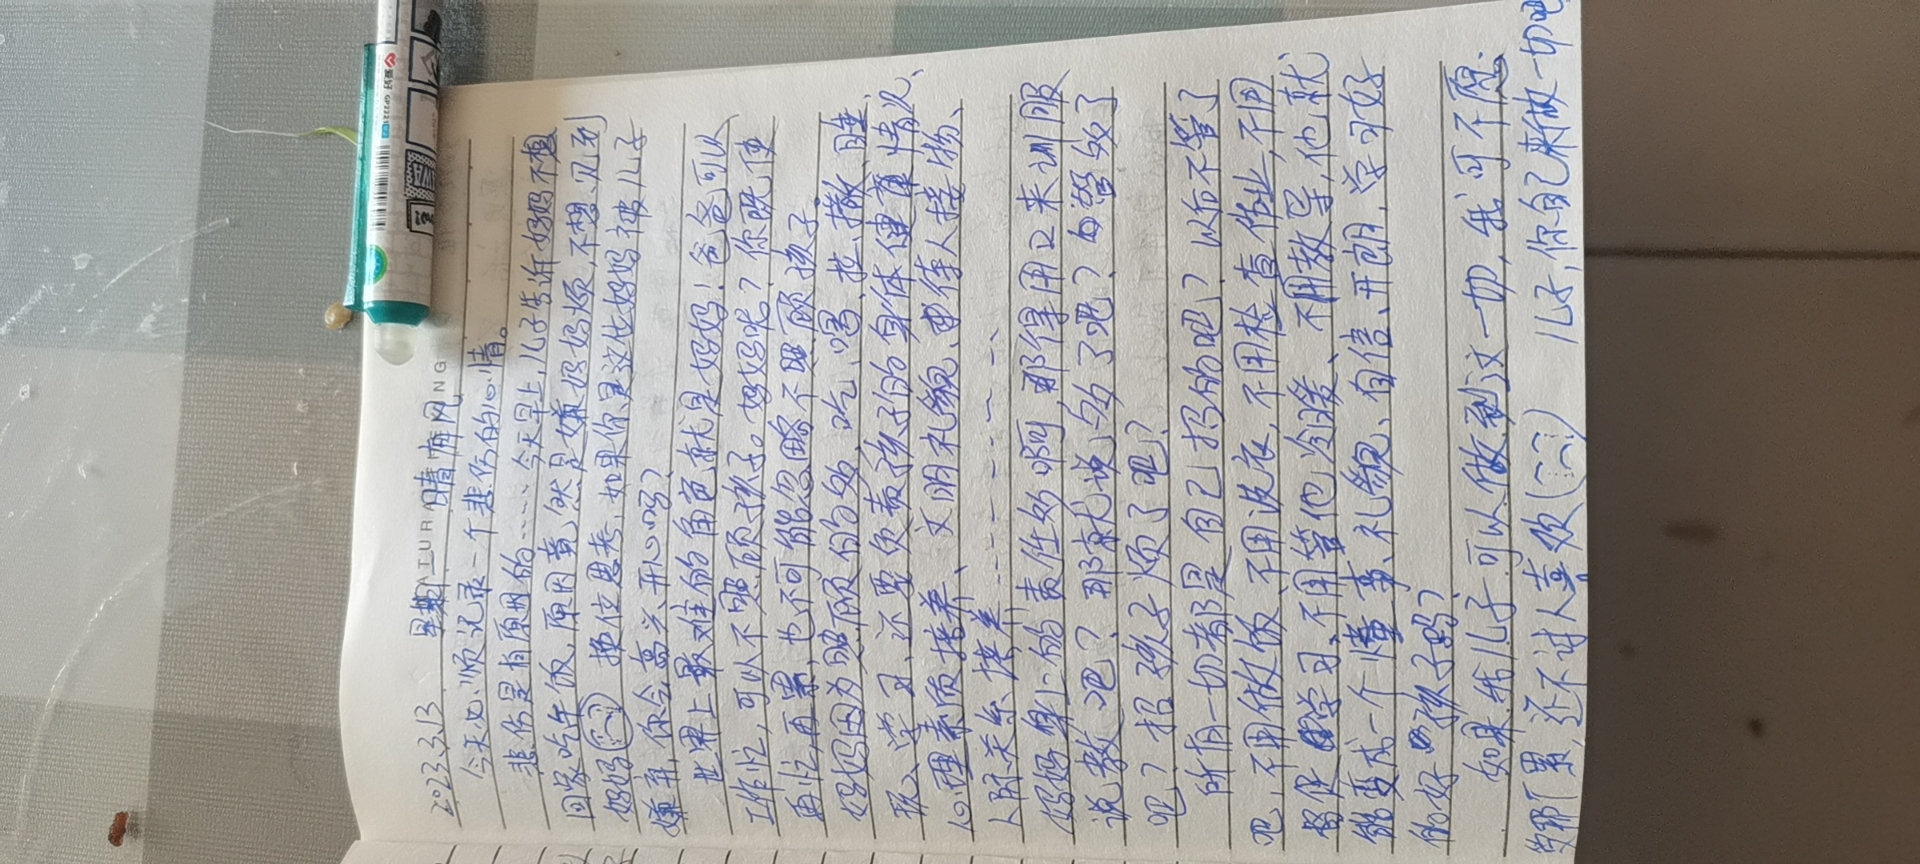 2023.3.13 星期一 晴有风
今天必须记录一个悲伤的心情。
悲伤是有原因的……今天早上,儿子告诉妈妈不想
回家吃午饭,原因竟然是嫌妈妈烦,不想见到
妈妈 换位思考,如果你是这位妈妈被儿子
嫌弃,你会高兴、开心吗?
世界上最难的角色就是妈妈!爸爸可以
工作忙,可以不照顾孩子。妈妈呢?你既便
再忙,再累,也不可能忽略不照顾孩子。
妈妈因为照顾的多,吃、喝、拉、撒、睡、
教、学习,还要负责孩子的身体健康情况、
心理素质培养、文明礼貌、待人接物、
人际关系培养……
妈妈身上的责任多啊 那得用口来训服
说教吧?那就说多了吧?也管多了
吧?招孩子烦了吧?
所有一切都是自己招的吧?以后不管了
吧,不用做饭、不用洗衣,不用检查作业,不用
督促学习,不用管他冷暖、不用教导,他就
能变成一个懂事、礼貌、自信、开朗、学习好
的好孩子吗?
如果我儿子可以做到这一切,我可不愿
受那累,还不讨人喜欢 儿子,你自己来做一切吧
NATURAL
NG
爱好